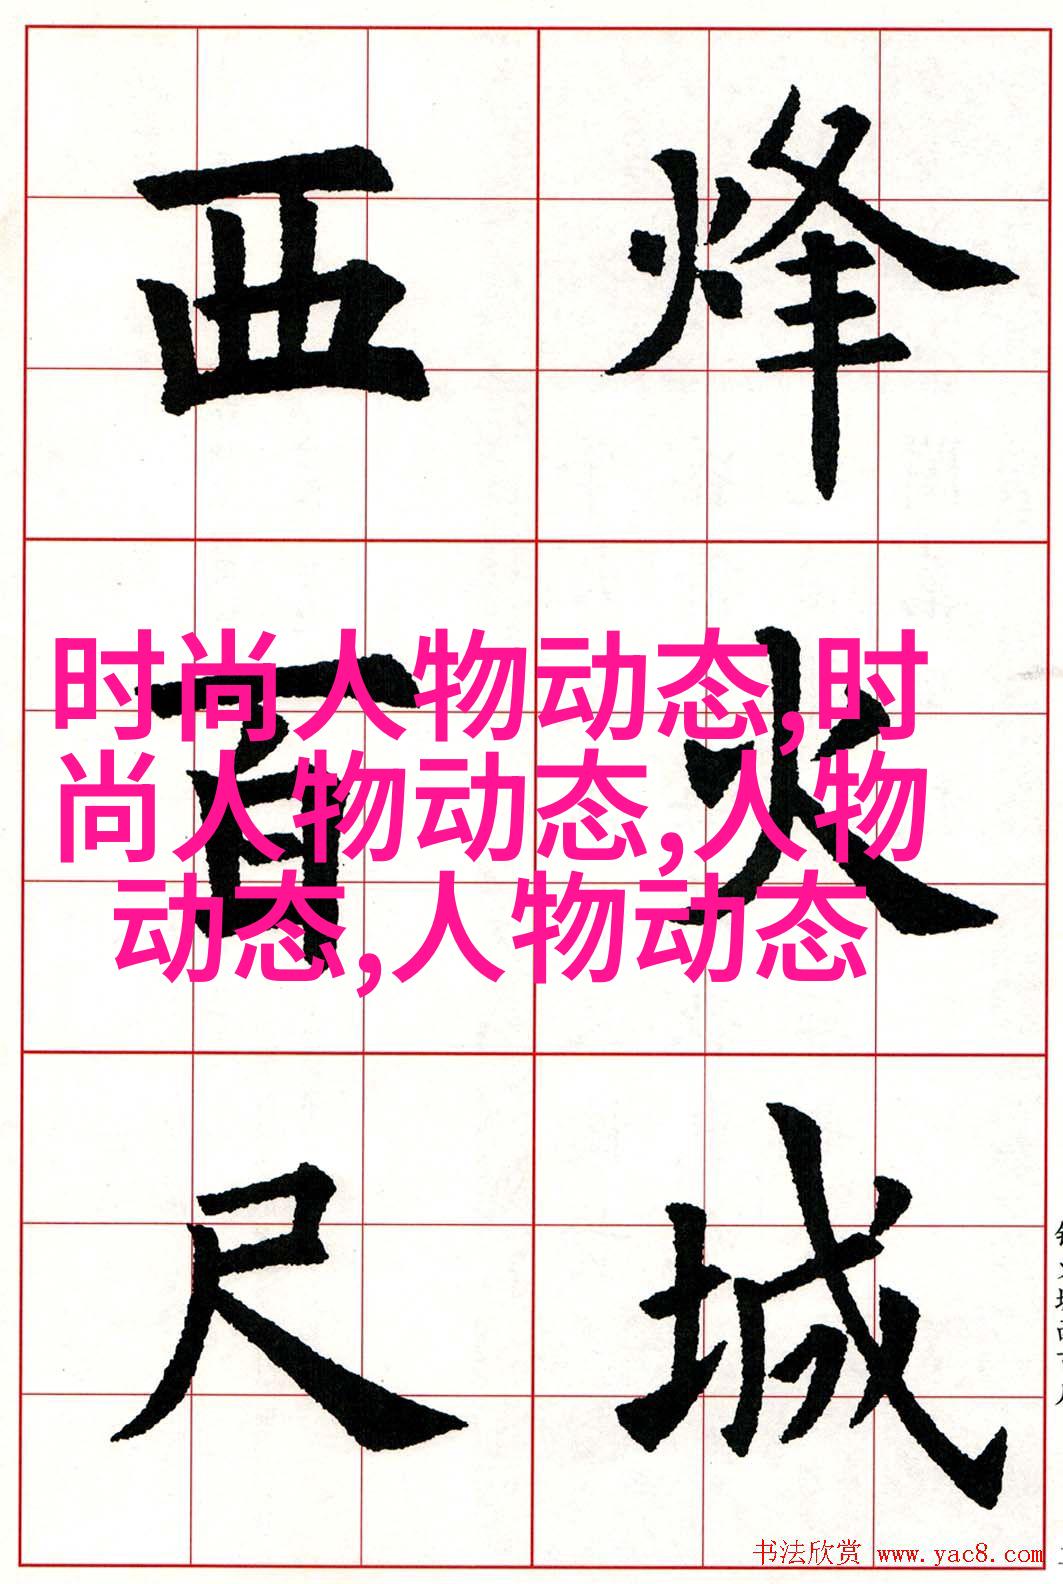 烽火城
西百尺
时尚人物动态,时
尚人物动态,人物
动态,人物动态
书法欣赏 www.yac8.com